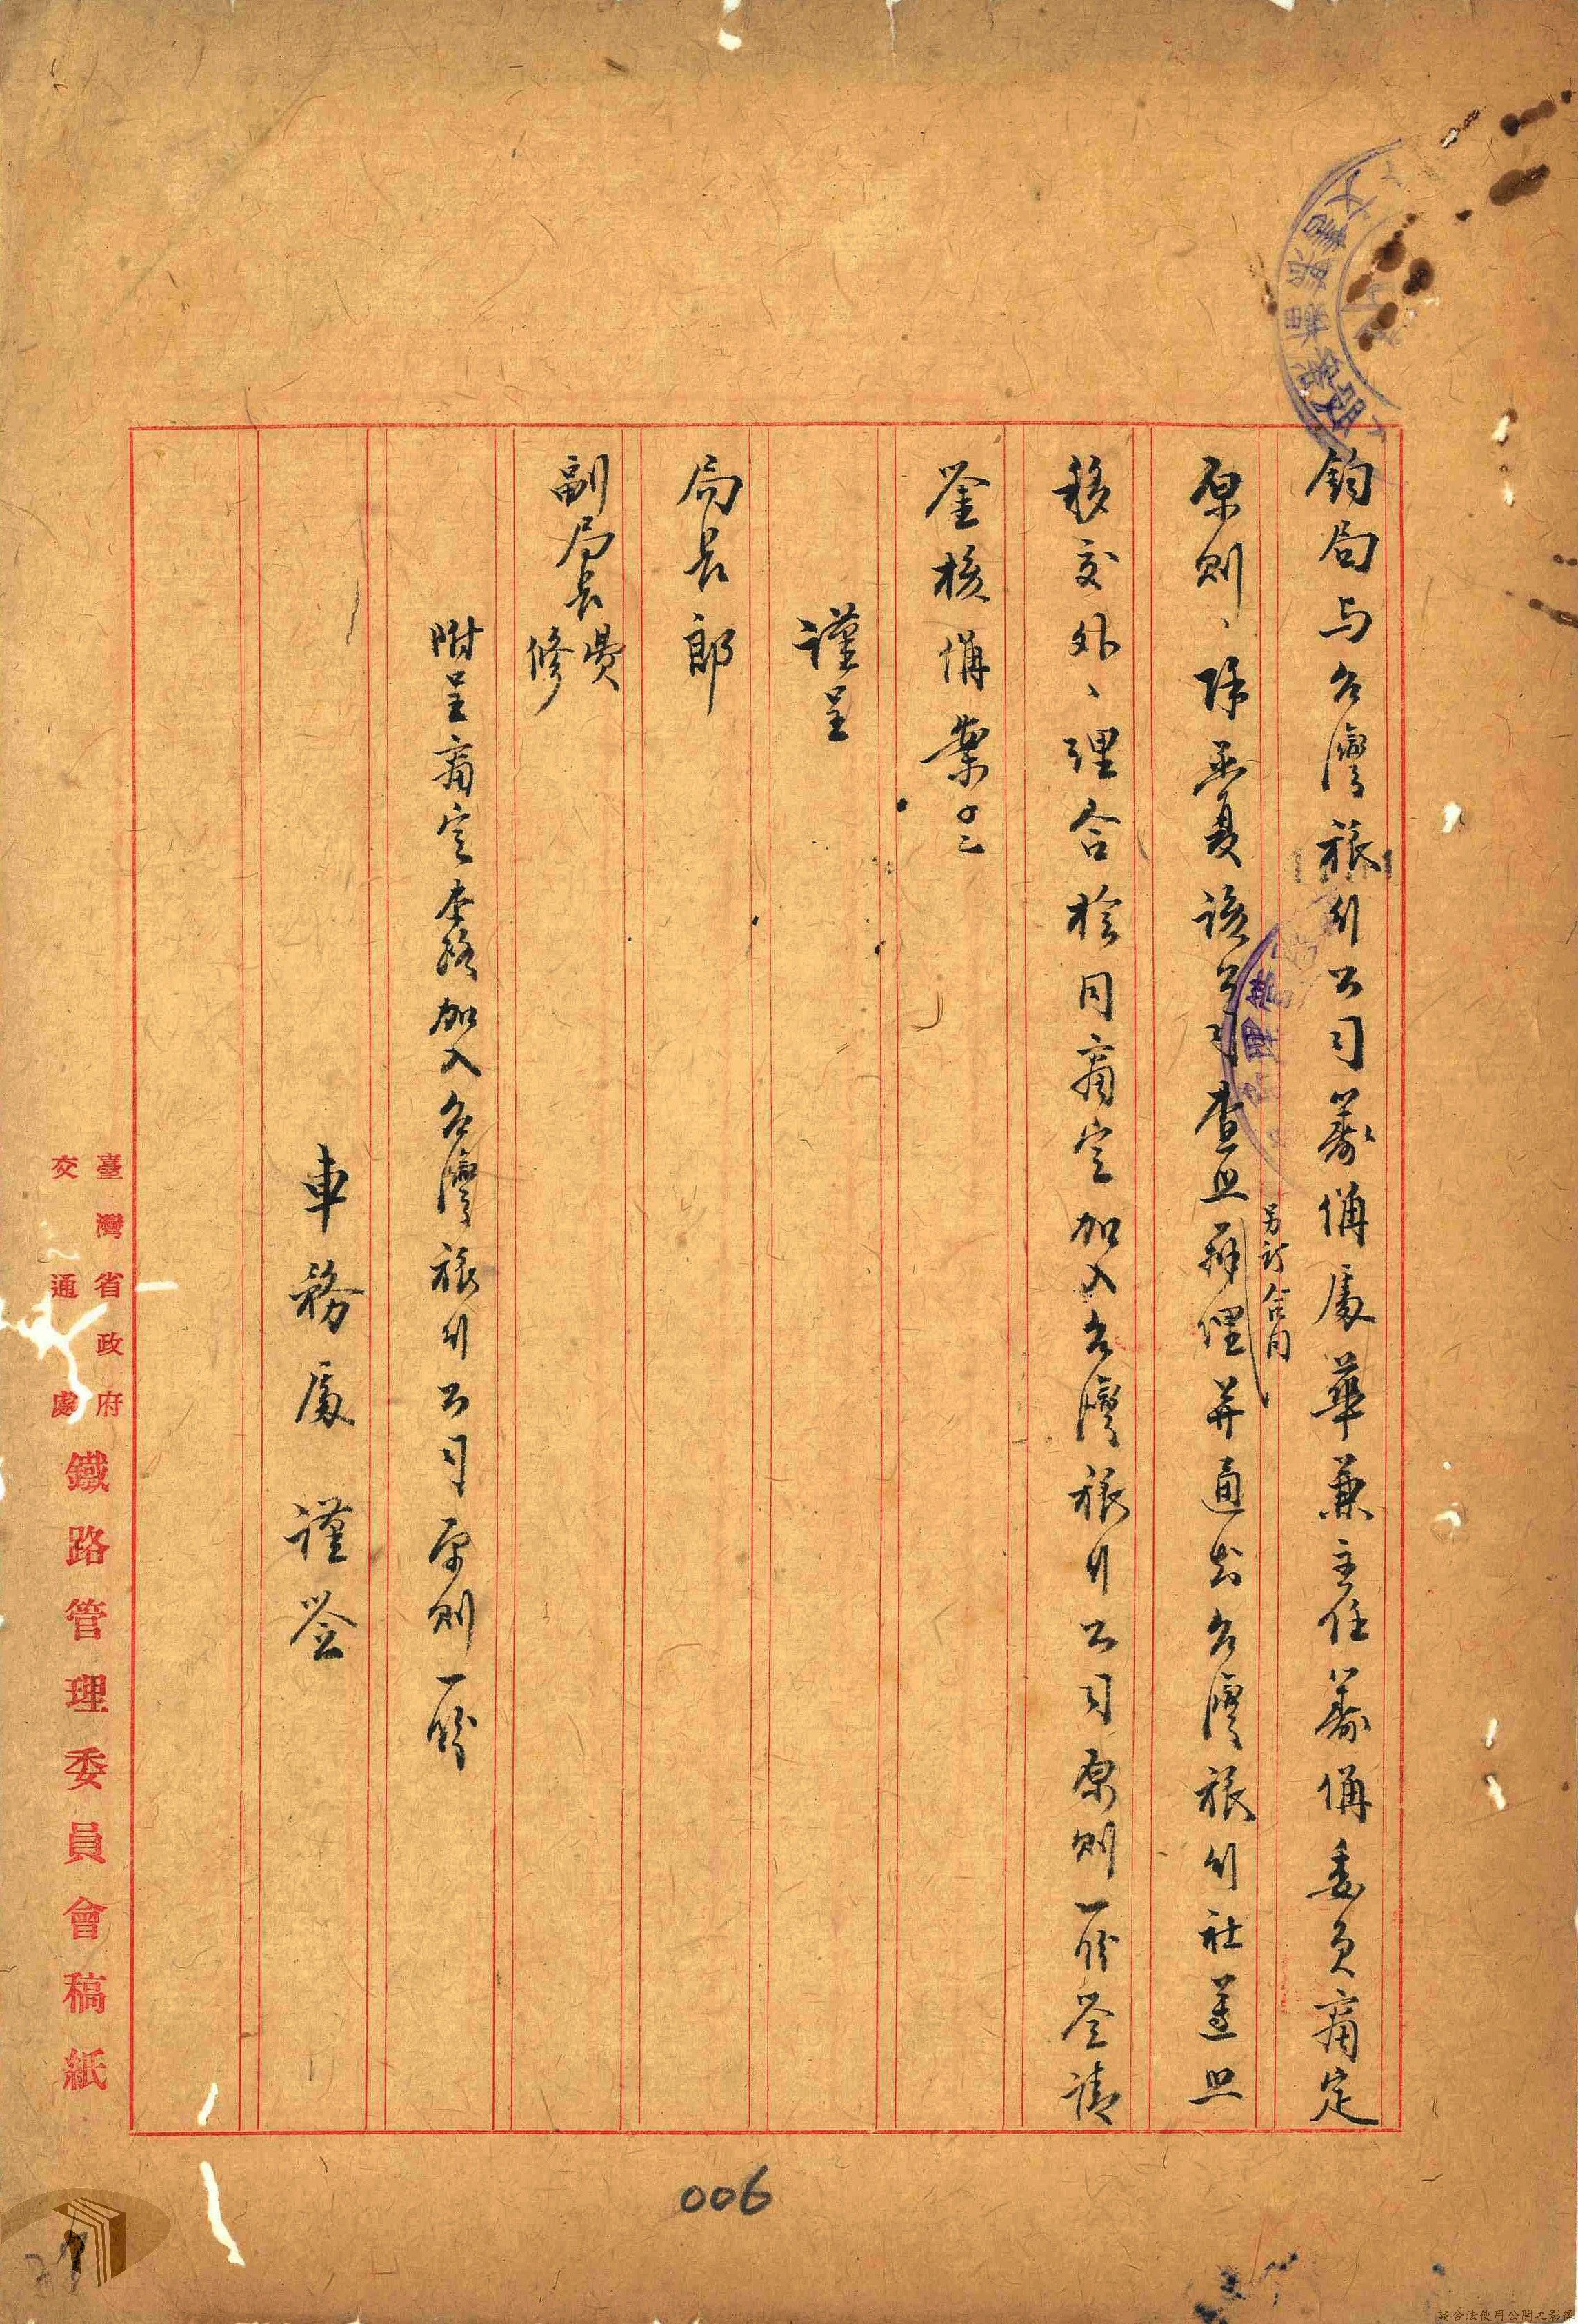 鈞局与台灣旅行公司籌備處華兼主任籌備委員商定
原則、除函复該公司查照辦理并通知台灣旅行社遵照
另訂合同
移交外、理合檢同商定加入台灣旅行公司原則一份簽請
鉴核備案
謹呈
局長郎
副局長費
修
附呈商定本路加入台灣旅行公司原則一份
車務處謹簽
臺灣省政府
交通處
鐵路管理委員會稿紙
006
請合法使用公開之影像